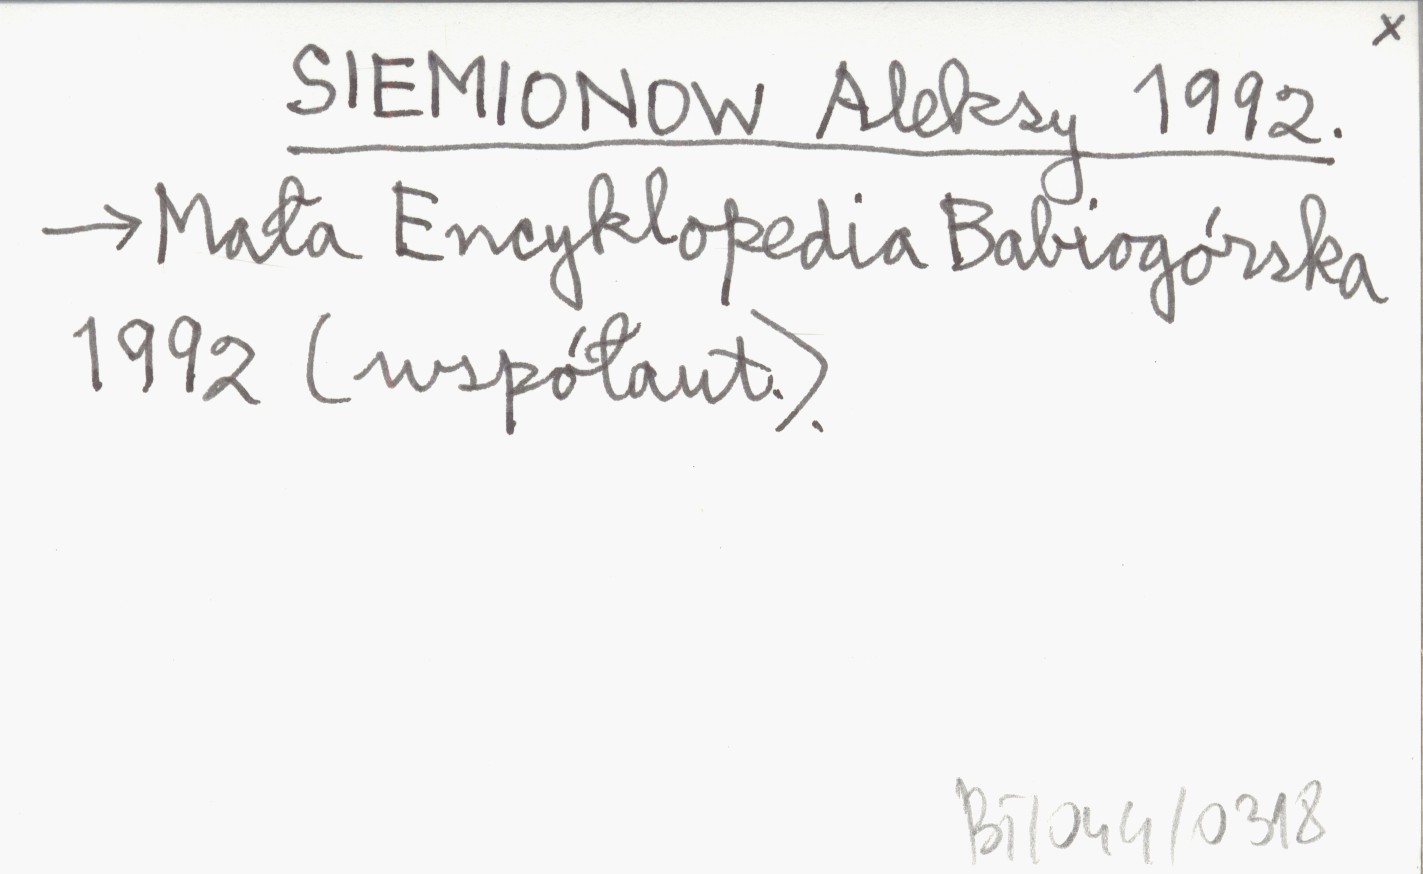 x
SIEMIONOW Aleksy 1992.
→ Mała Encyklopedia Babiogórska
1992 (współaut.).
BT/044/0318